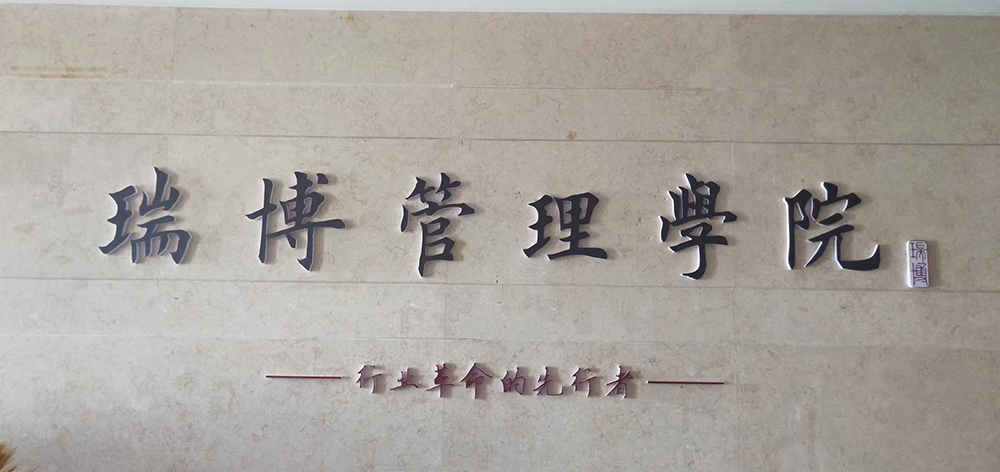 瑞博管理學院
瑞博
行业革命的先行者